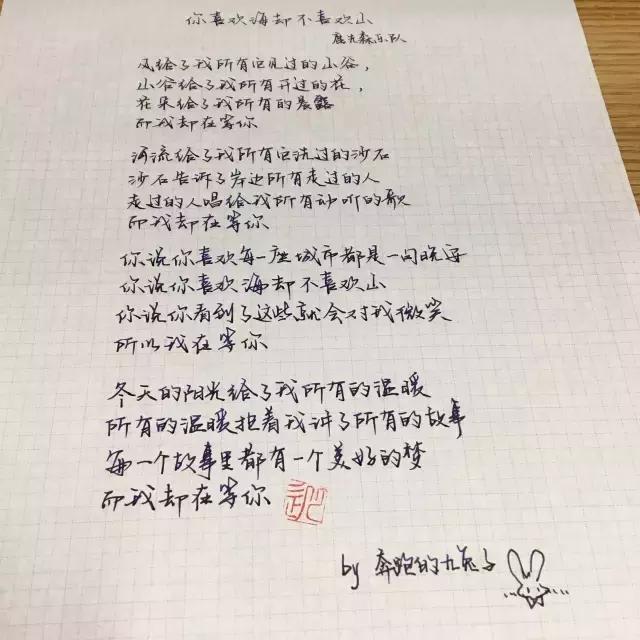 你喜欢海却不喜欢山
鹿先森乐队
风给了我所有它见过的山谷，
山谷给了我所有开过的花，
花朵给了我所有的晨露
而我却在等你
河流给了我所有它洗过的沙石
沙石告诉了岸边所有走过的人
走过的人唱给我所有动听的歌
而我却在等你
你说你喜欢每一座城市都是一句晚安
你说你喜欢海却不喜欢山
你说你看到了这些就会对我微笑
所以我在等你
冬天的阳光给了我所有的温暖
所有的温暖抱着我讲了所有的故事
每一个故事里都有一个美好的梦
而我却在等你
by 奔跑的九兔子